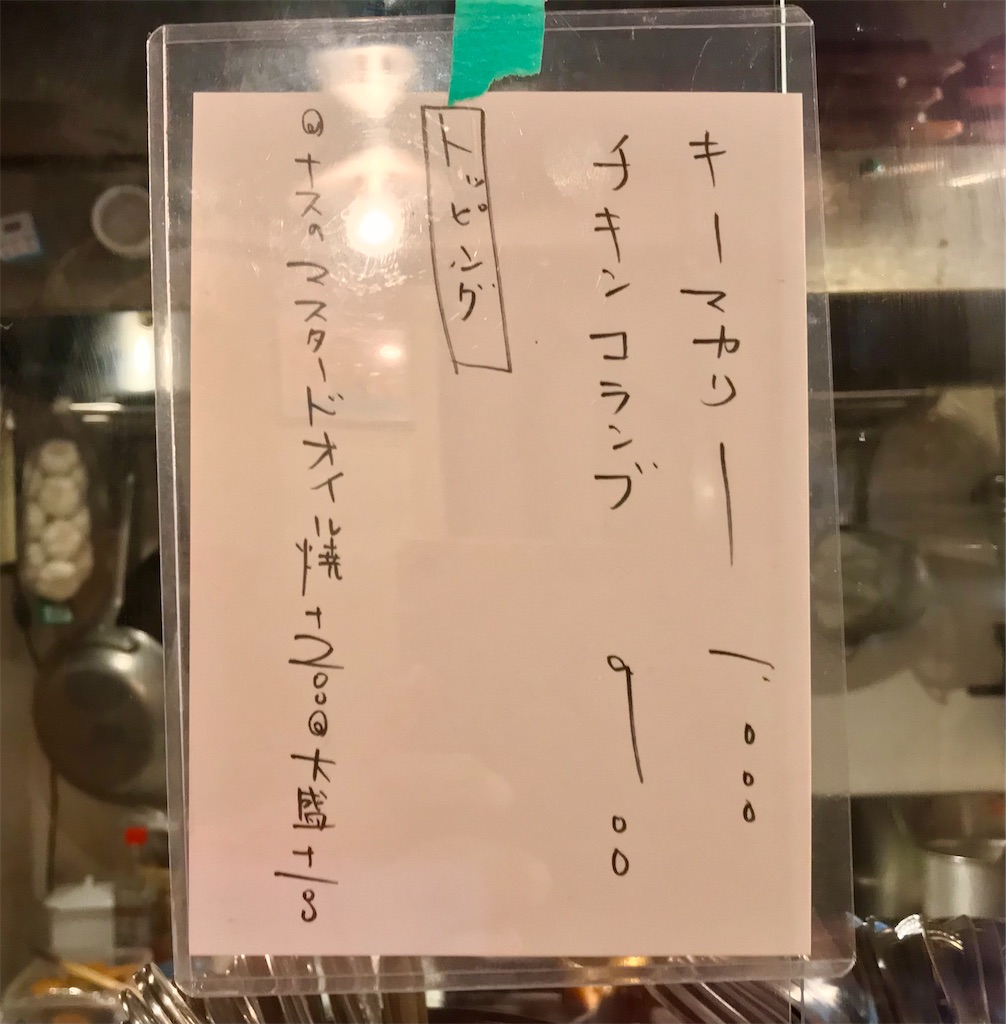 キーマカリー 1.000
チキンコランブ 900
トッピング
◎ナスのマスタードオイル焼+200◎大盛+100